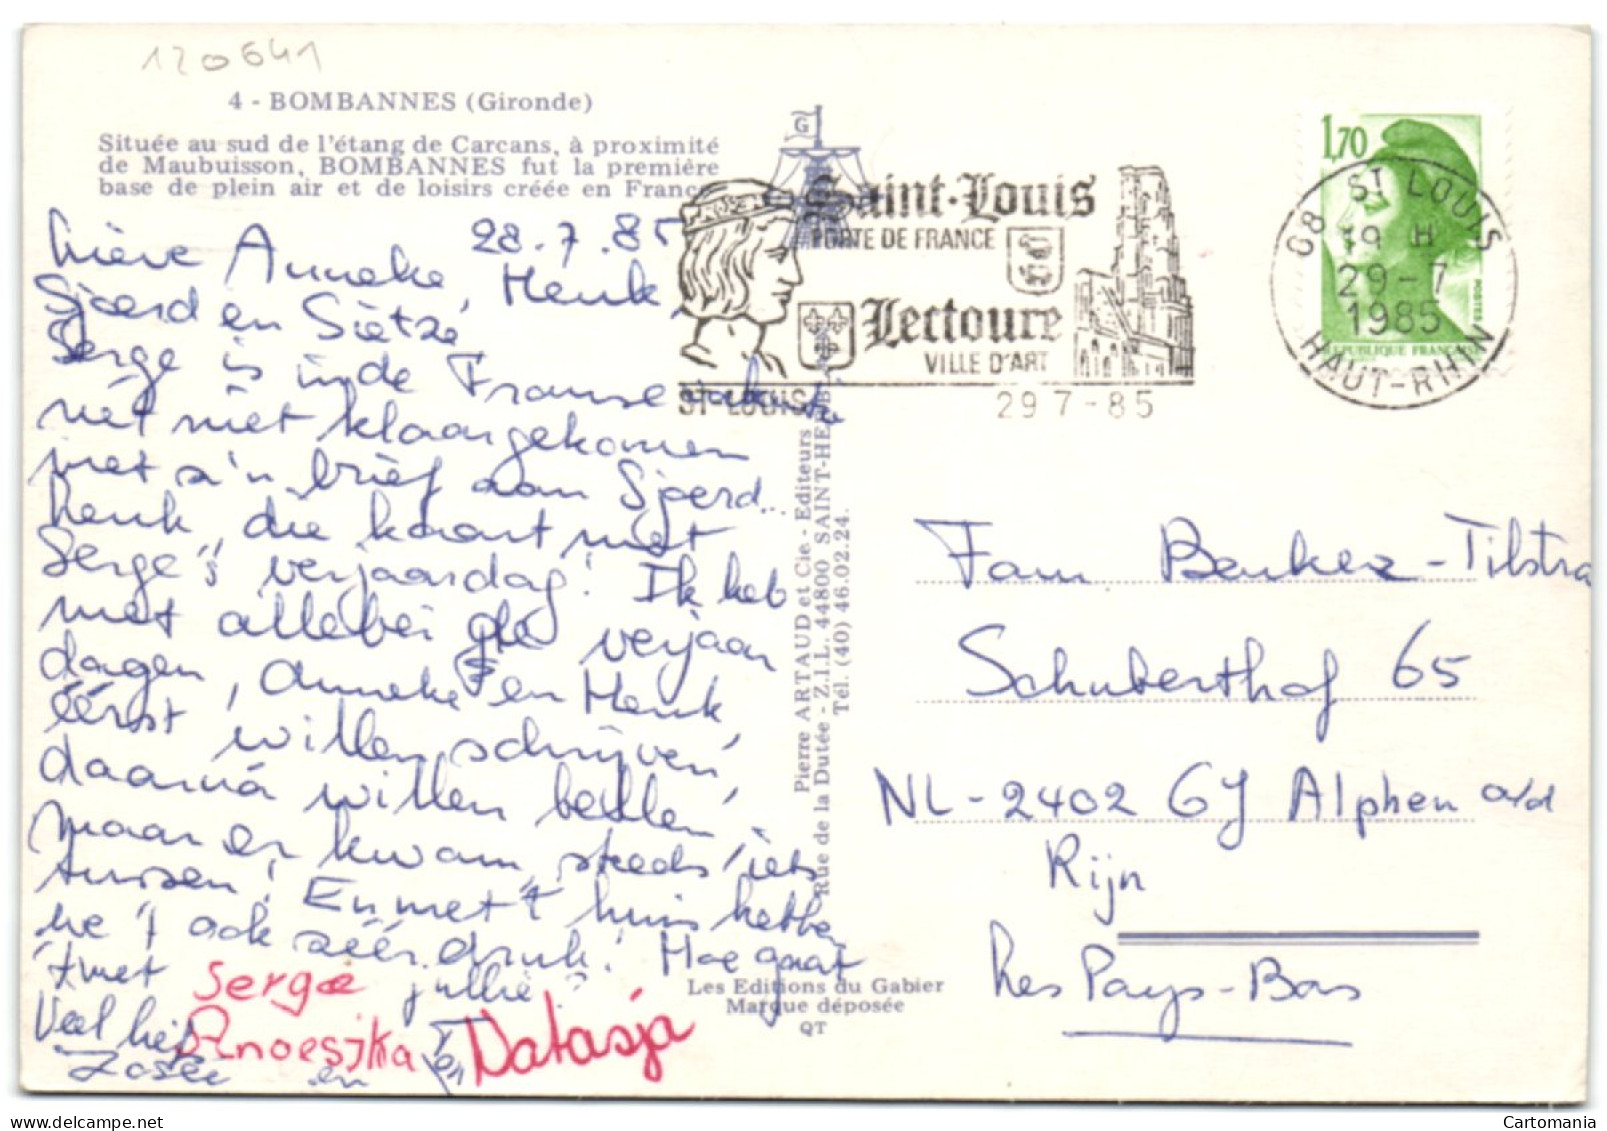 120641
4 - BOMBANNES (Gironde)
Située au sud de l'étang de Carcans, à proximité
de Maubuisson, BOMBANNES fut la première
base de plein air et de loisirs créée en France
28.7.85
Lieve Anneke, Henk,
Sjoerd en Sietze
Serge is in de Franse vakantie
net niet klaargekomen
met z'n brief aan Sjoerd...
Henk, die kaart met
Serge's verjaardag! Ik heb
met allebei verjaar
dagen, Anneke en Henk
éérst willen schrijven,
daarná willen bellen,
maar er kwam steeds iets
tussen! En met 't huis hebben
we 't ook zéér druk! Hoe gaat
't met jullie?
Veel liefs
Josée en Ton
Serge
Anoesjka
Natasja
G
Saint-Louis
PORTE DE FRANCE
Lectoure
VILLE D'ART
ST-LOUIS
29 7-85
1,70
68 ST LOUIS
19 H
29-7
1985
HAUT-RHIN
POSTES
REPUBLIQUE FRANÇAISE
Pierre ARTAUD et Cie - Editeurs
Rue de la Dutée - Z.I.L. 44800 SAINT-HERB
Tél. (40) 46.02.24.
Fam Beukez-Tilstra
Schuberthof 65
NL-2402 GJ Alphen a/d
Rijn
Les Pays-Bas
Les Editions du Gabier
Marque déposée
QT
Cartomania